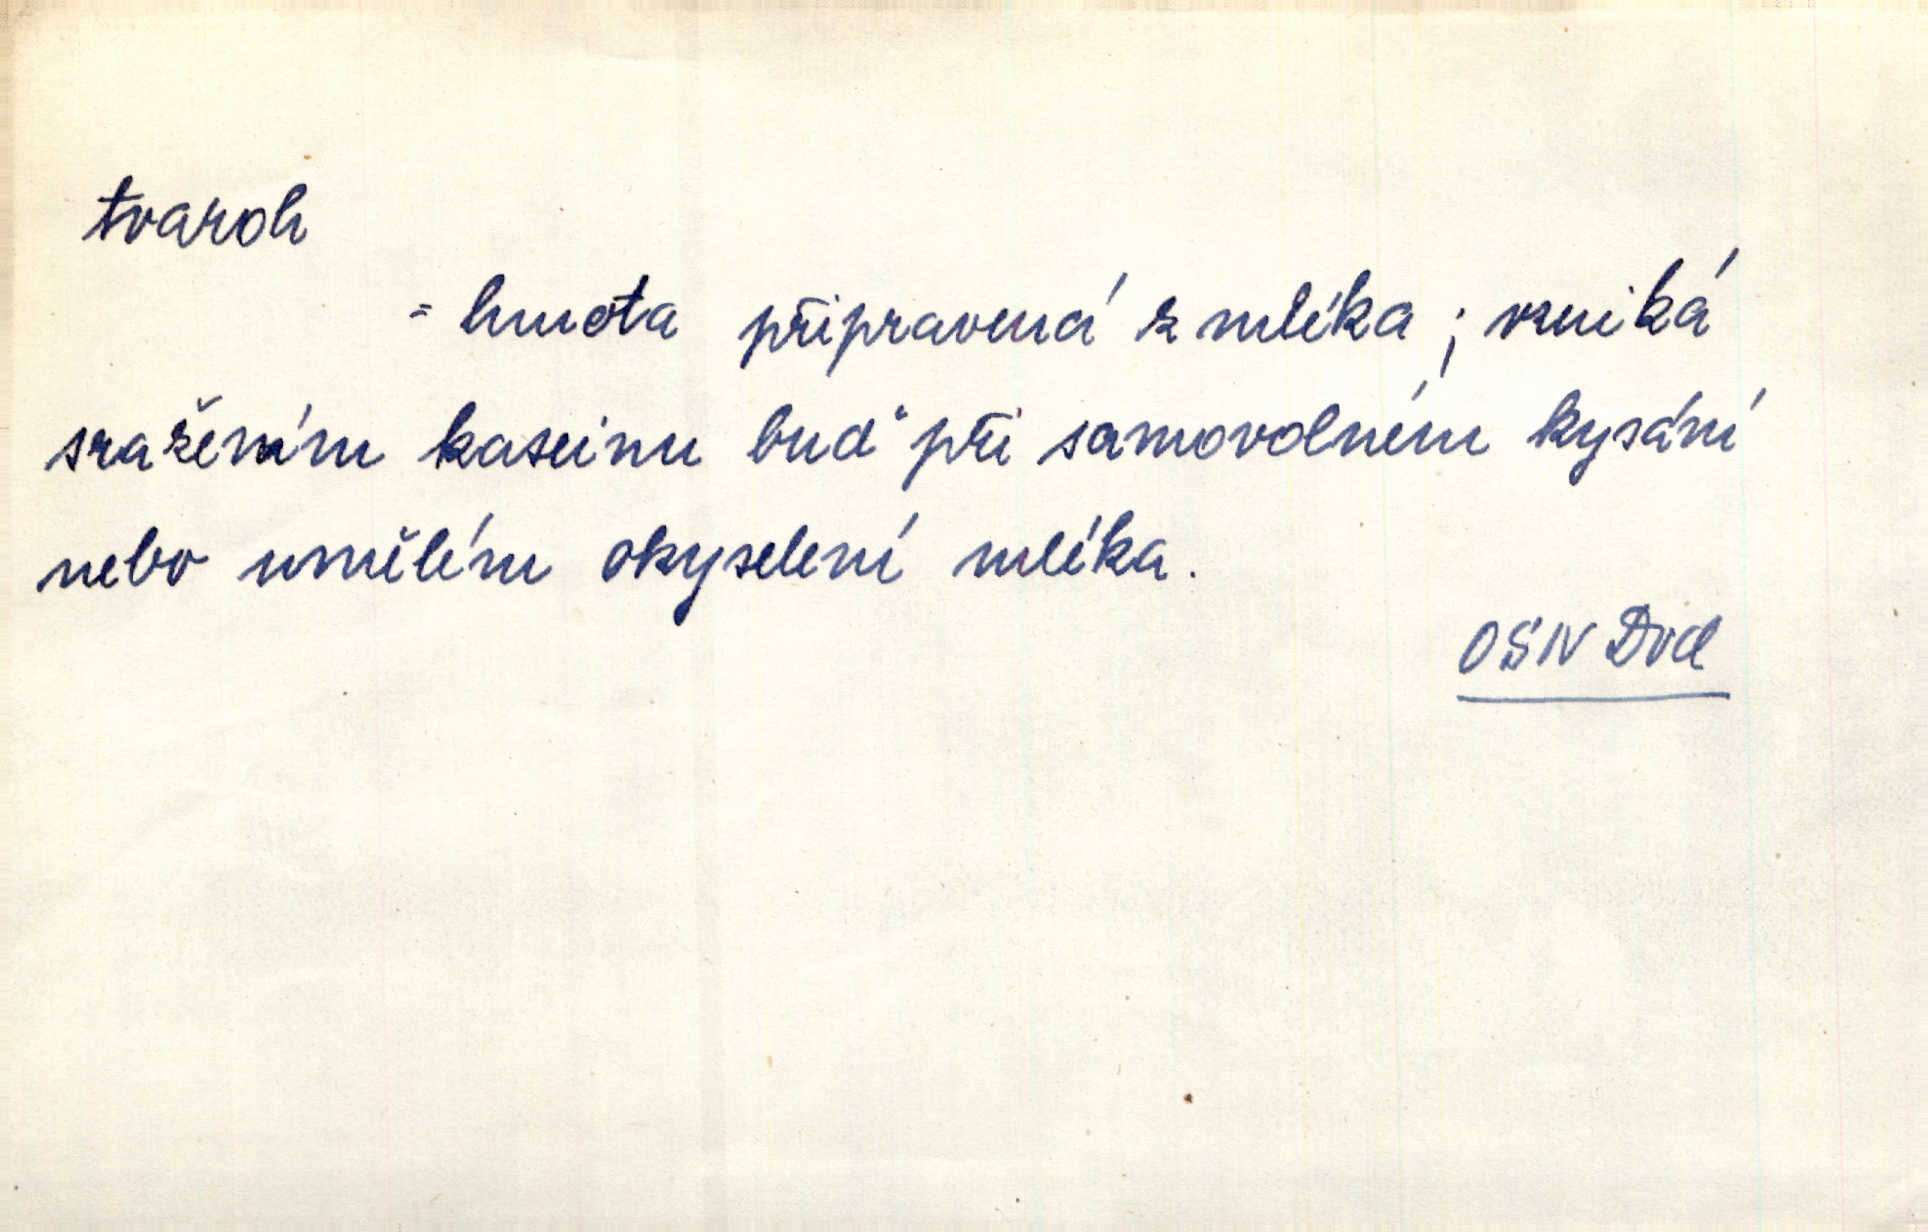 tvaroh
= hmota připravená z mléka ; vzniká
sražením kaseinu buď při samovolném kysání
nebo umělém okyselení mléka.
OSIV Dvd